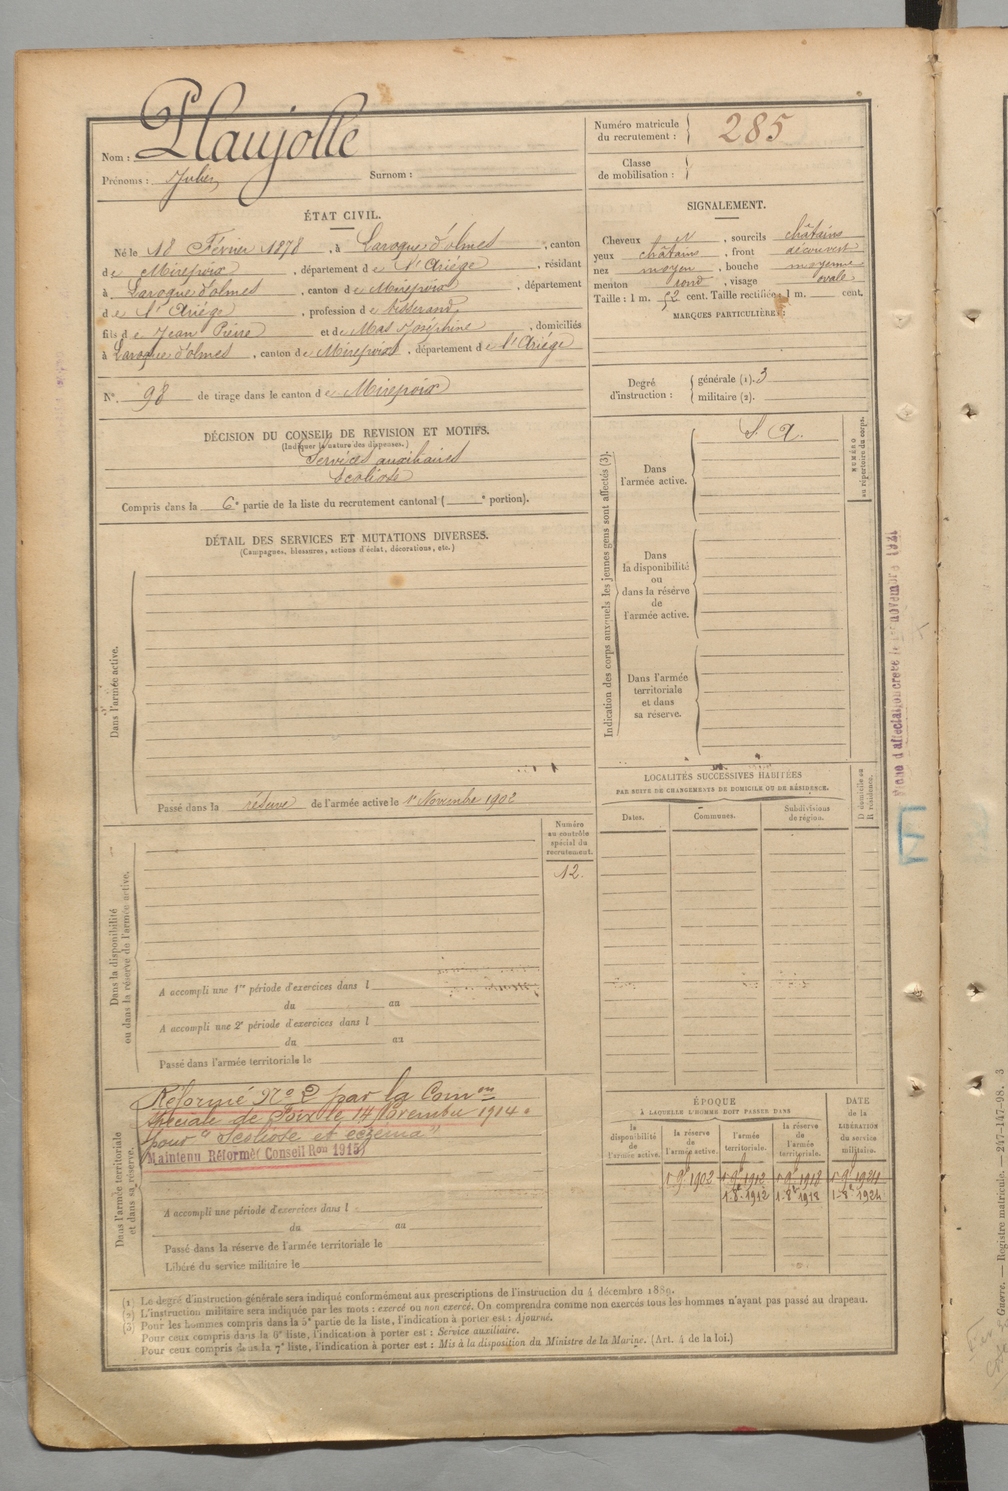 Nom : Plaujolle
Prénoms : Julien Surnom :
Numéro matricule du recrutement : 285
Classe de mobilisation :
ÉTAT CIVIL.
Né le 18 Février 1878, à Laroque d'olmes, canton
de Mirepoix, département de l'Ariége, résidant
à Laroque d'olmes, canton de Mirepoix, département
de l'Ariége, profession de Tisserand
fils de Jean Pierre et de Mas Joséphine, domiciliés
à Laroque d'olmes, canton de Mirepoix, département de l'Ariége
N° 98 de tirage dans le canton de Mirepoix
SIGNALEMENT.
Cheveux N, sourcils châtains
yeux châtains, front découvert
nez moyen, bouche moyenne
menton rond, visage ovale
Taille : 1 m. 52 cent. Taille rectifiée 1 m. cent.
MARQUES PARTICULIÈRES :
Degré d'instruction : générale (1). 3
militaire (2).
DÉCISION DU CONSEIL DE REVISION ET MOTIFS.
(Indiquer la nature des dispenses.)
Services auxiliaires
Scoliose
Compris dans la 6e partie de la liste du recrutement cantonal ( e portion).
DÉTAIL DES SERVICES ET MUTATIONS DIVERSES.
(Campagnes, blessures, actions d'éclat, décorations, etc.)
Dans l'armée active.
Passé dans la réserve de l'armée active le 1er Novembre 1902
Indication des corps auxquels les jeunes gens sont affectés (3).
Dans l'armée active.
S. A.
Dans la disponibilité ou dans la réserve de l'armée active.
Dans l'armée territoriale et dans sa réserve.
NUMÉRO au répertoire du corps.
LOCALITÉS SUCCESSIVES HABITÉES
PAR SUITE DE CHANGEMENTS DE DOMICILE OU DE RÉSIDENCE.
Dates. Communes. Subdivisions de région.
D domicile ou R résidence.
Numéro au contrôle spécial du recrutement.
12.
Dans la disponibilité ou dans la réserve de l'armée active.
A accompli une 1re période d'exercices dans l
du au
A accompli une 2e période d'exercices dans l
du au
Passé dans l'armée territoriale le
Dans l'armée territoriale et dans sa réserve.
Réformé No 2 par la Comon
Spéciale de Foix le 14 Novembre 1914.
pour "Scoliose et eczéma"
Maintenu Réformé (Conseil Ron 1915)
A accompli une période d'exercices dans l
du au
Passé dans la réserve de l'armée territoriale le
Libéré du service militaire le
ÉPOQUE
À LAQUELLE L'HOMME DOIT PASSER DANS
la disponibilité de l'armée active.
la réserve de l'armée active.
l'armée territoriale.
la réserve de l'armée territoriale.
DATE de la LIBÉRATION du service militaire.
1er 9bre 1902 1er 9bre 1912 1er 9bre 1918 1er 9bre 1924
1-8bre 1912 1-8bre 1918 1-8bre 1924
(1) Le degré d'instruction générale sera indiqué conformément aux prescriptions de l'instruction du 4 décembre 1889.
(2) L'instruction militaire sera indiquée par les mots : exercé ou non exercé. On comprendra comme non exercés tous les hommes n'ayant pas passé au drapeau.
(3) Pour les hommes compris dans la 5e partie de la liste, l'indication à porter est : Ajourné.
Pour ceux compris dans la 6e liste, l'indication à porter est : Service auxiliaire.
Pour ceux compris dans la 7e liste, l'indication à porter est : Mis à la disposition du Ministre de la Marine. (Art. 4 de la loi.)
novembre 1921
Guerre. — Registre matricule. — 247-147-98. 3